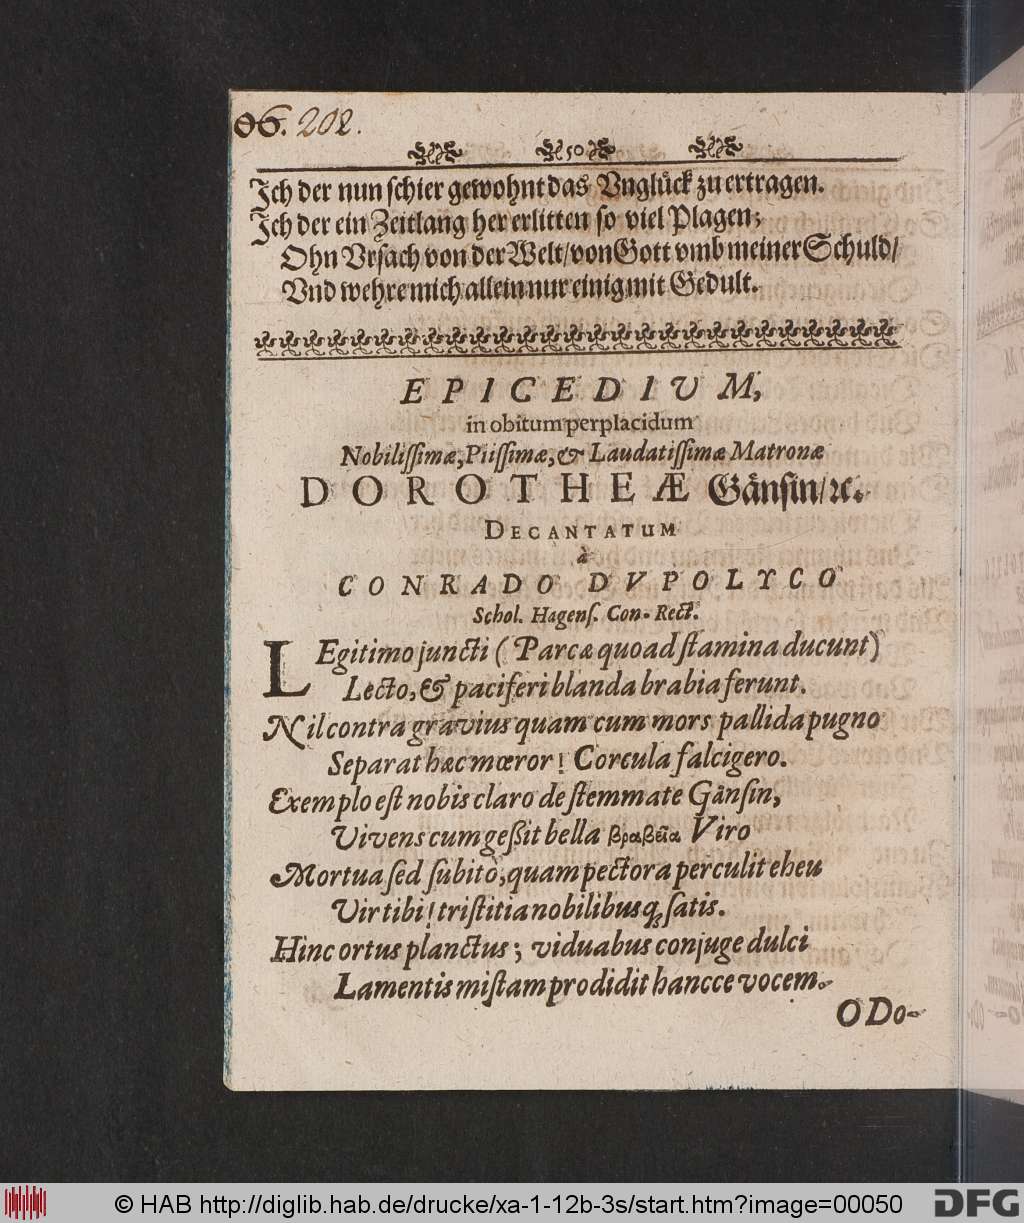 06. 202.
50
Ich der nun schier gewohnt das Vnglůck zu ertragen.
Ich der ein Zeitlang her erlitten so viel Plagen;
Ohn Vrsach von der Welt/ von Gott vmb meiner Schuld/
Vnd wehre mich allein nur einig mit Gedult.
EPICEDIUM,
in obitum perplacidum
Nobilissimæ, Piissimæ, & Laudatissimæ Matronæ
DOROTHEÆ Gånsin/ ꝛc.
DECANTATUM
à
CONRADO DVPOLYCO
Schol. Hagens. Con-Rect.
LEgitimo juncti ( Parcæ quoad stamina ducunt)
Lecto, & paciferi blanda brabia ferunt.
Nil contra gravius quam cum mors pallida pugno
Separat hæc mœror! Corcula falcigero.
Exemplo est nobis claro de stemmate Gånsin,
Vivens cum geßit bella βραβεῖα Viro
Mortua sed subitò, quam pectora perculit eheu
Vir tibi! tristitia nobilibusq; satis.
Hinc ortus planctus; viduabus conjuge dulci
Lamentis mistam prodidit hancce vocem.
O Do-
© HAB http://diglib.hab.de/drucke/xa-1-12b-3s/start.htm?image=00050
DFG